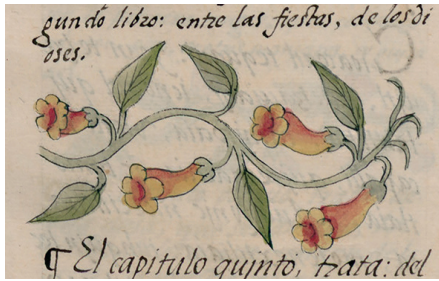 gundo libro: entre las fiestas, de los di
oses.
¶ El capitulo quinto, trata: del